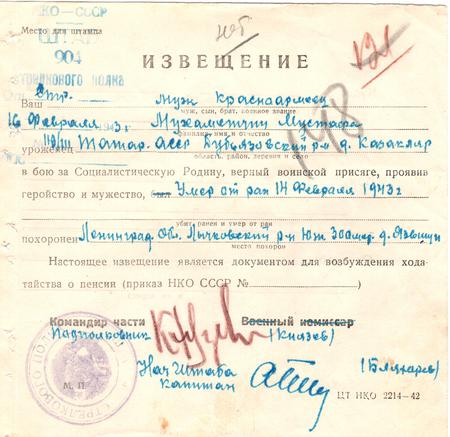 НКО—СССР
Место для штампа
ШТАБ
904
Стрелкового полка
121
198
ИЗВЕЩЕНИЕ
Ваш муж красноармеец
муж, сын, брат, военное звание
16 Февраля 1943 г. Мухаметшин Мустафа
фамилия, имя и отчество
уроженец Татар. АССР Дубьязовский р-н д. Казаклар
область, район, деревня и село
в бою за Социалистическую Родину, верный воинской присяге, проявив
геройство и мужество, был Умер от ран 14 Февраля 1943 г
убит, ранен и умер от ран
похоронен Ленинград. Обл. Лычковский р-н Юж. 300 метр. д.
место похорон
Настоящее извещение является документом для возбуждения хода-
тайства о пенсии (приказ НКО СССР №
)
Командир части
Военный комиссар
Подполковник
(Князев)
М. П.
Нач Штаба
капитан
ЦТ НКО 2214—42